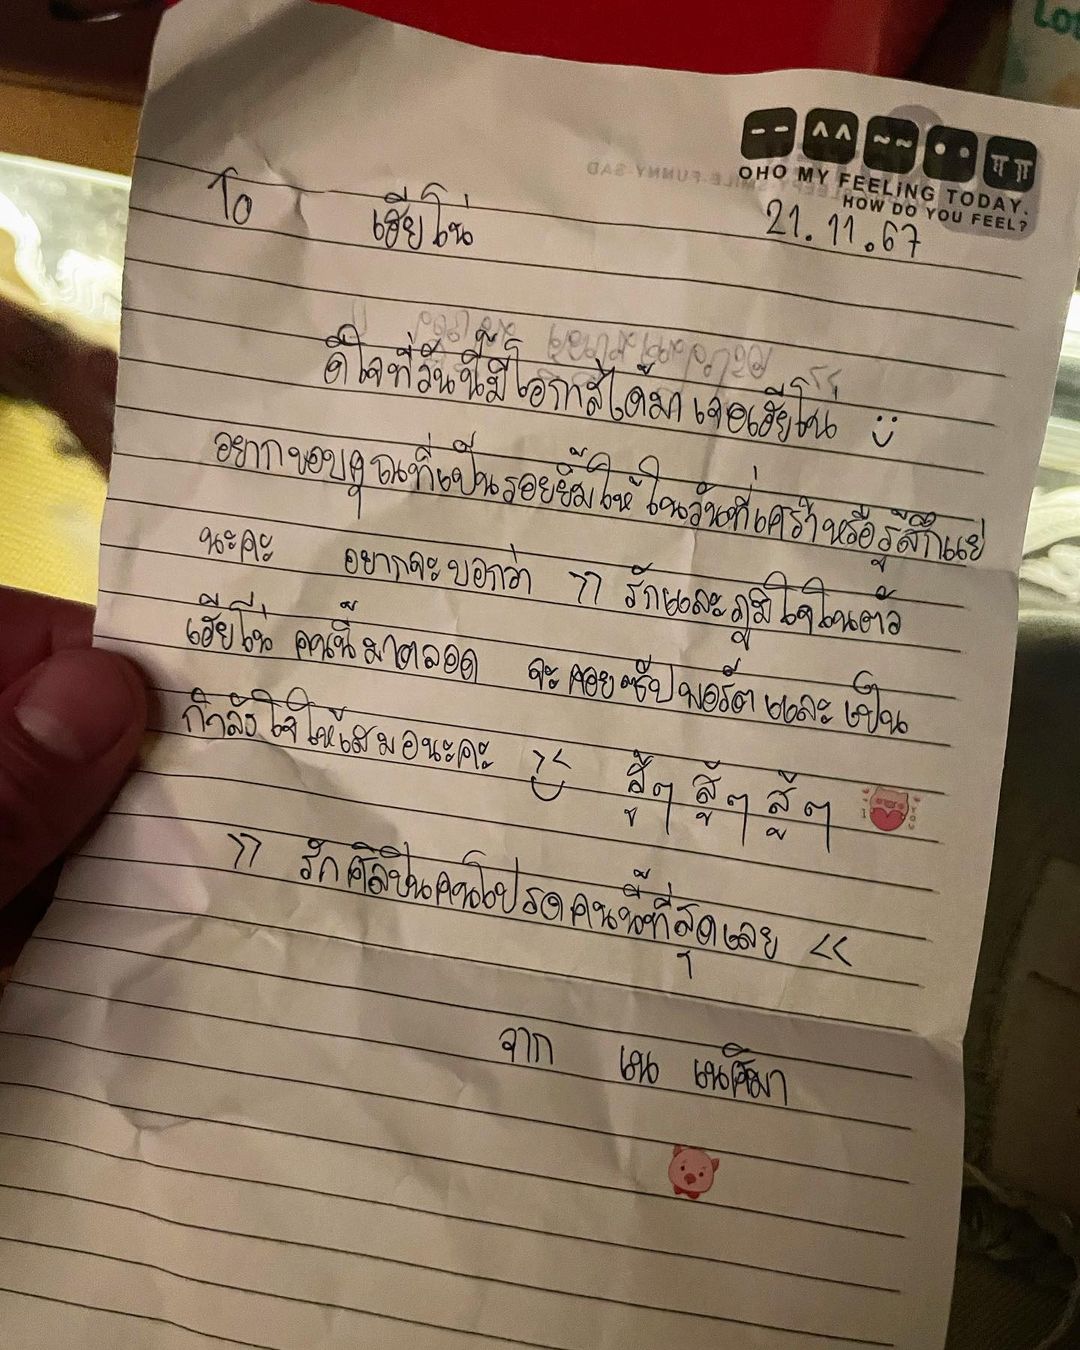 OHO MY FEELiNG TODAY.
HOW DO YOU FEEL?
21.11.67
To เฮียโน่
ดีใจที่วันนี้มีโอกาสได้มาเจอเฮียโน่
อยากขอบคุณที่เป็นรอยยิ้มให้ในวันที่เศร้าหรือรู้สึกแย่
นะคะ อยากจะบอกว่า >> รักและภูมิใจในตัว
เฮียโน่ คนนี้มาตลอด จะคอยซัปพอร์ตและเป็น
กำลังใจให้เสมอนะคะ สู้ๆ สู้ๆ สู้ๆ
>> รักศิลปินคนโปรดคนนี้ที่สุดเลย <<
จาก เนน เนศิมา